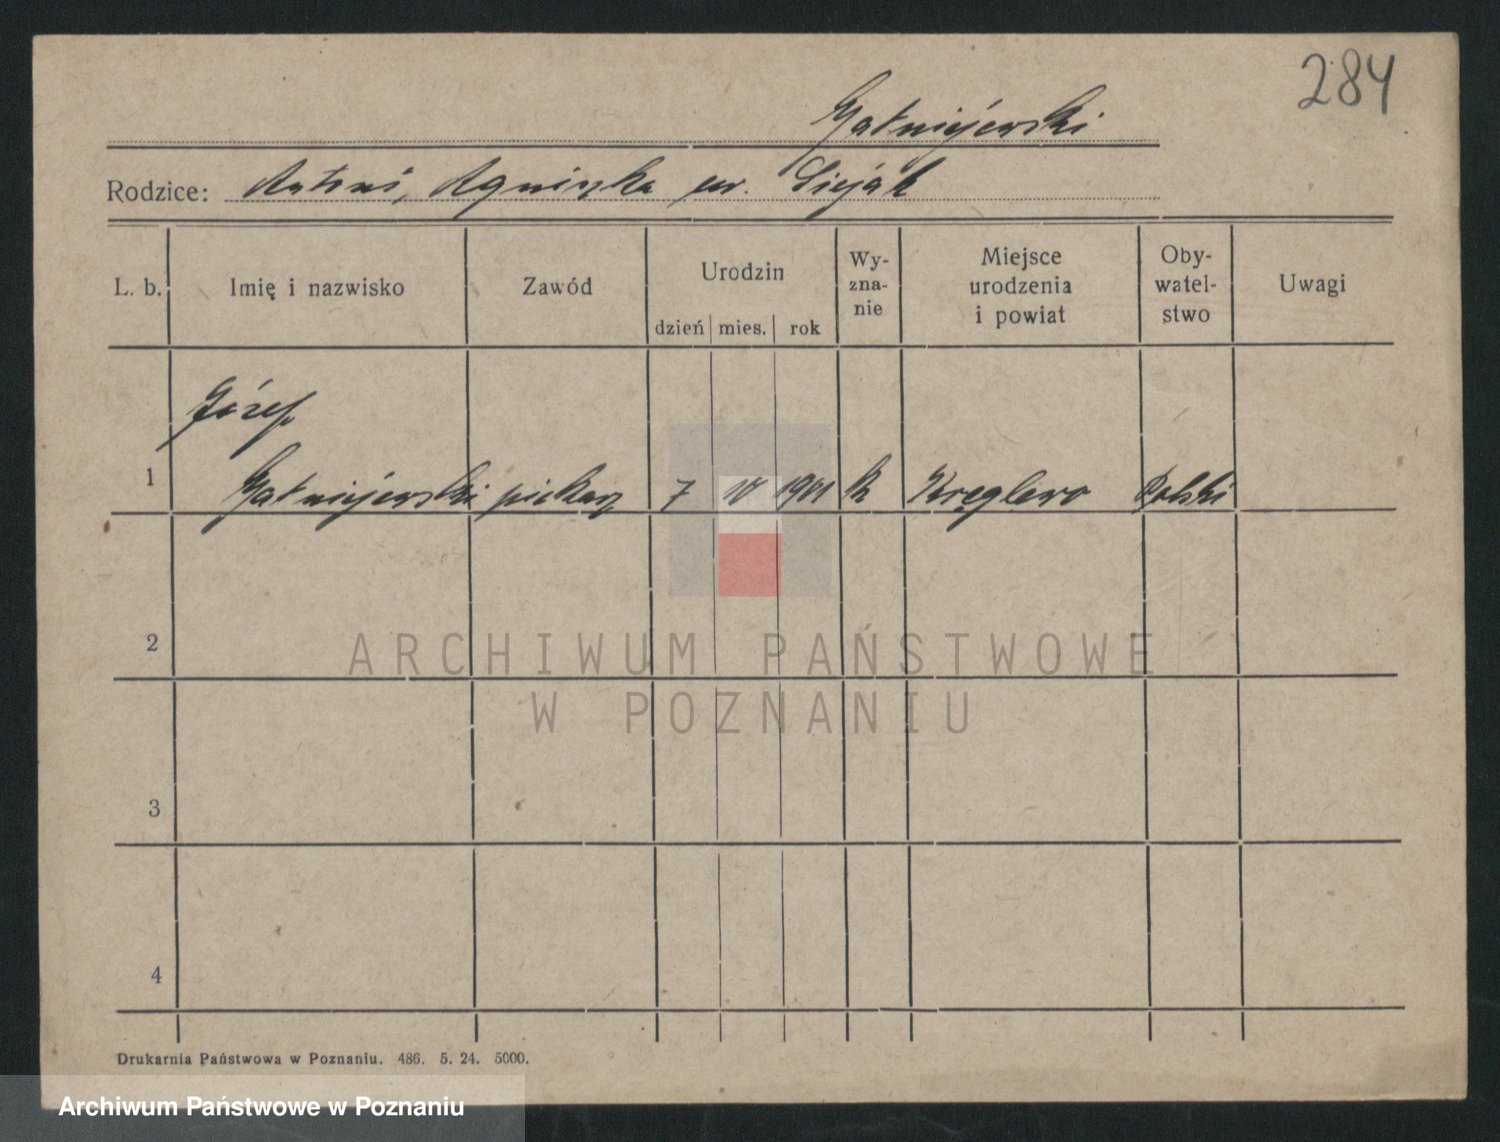 284
Gatniejewski
Rodzice: Antoni, Agnieszka ur. Siejak
L. b. Imię i nazwisko Zawód Urodzin dzień mies. rok Wy-zna-nie Miejsce urodzenia i powiat Oby-watel-stwo Uwagi
Józef
1 Gatniejewski piekarz 7 IV 1901 k Kręglewo Polski
2
ARCHIWUM PAŃSTWOWE
W POZNANIU
3
4
Drukarnia Państwowa w Poznaniu. 486. 5. 24. 5000.
Archiwum Państwowe w Poznaniu